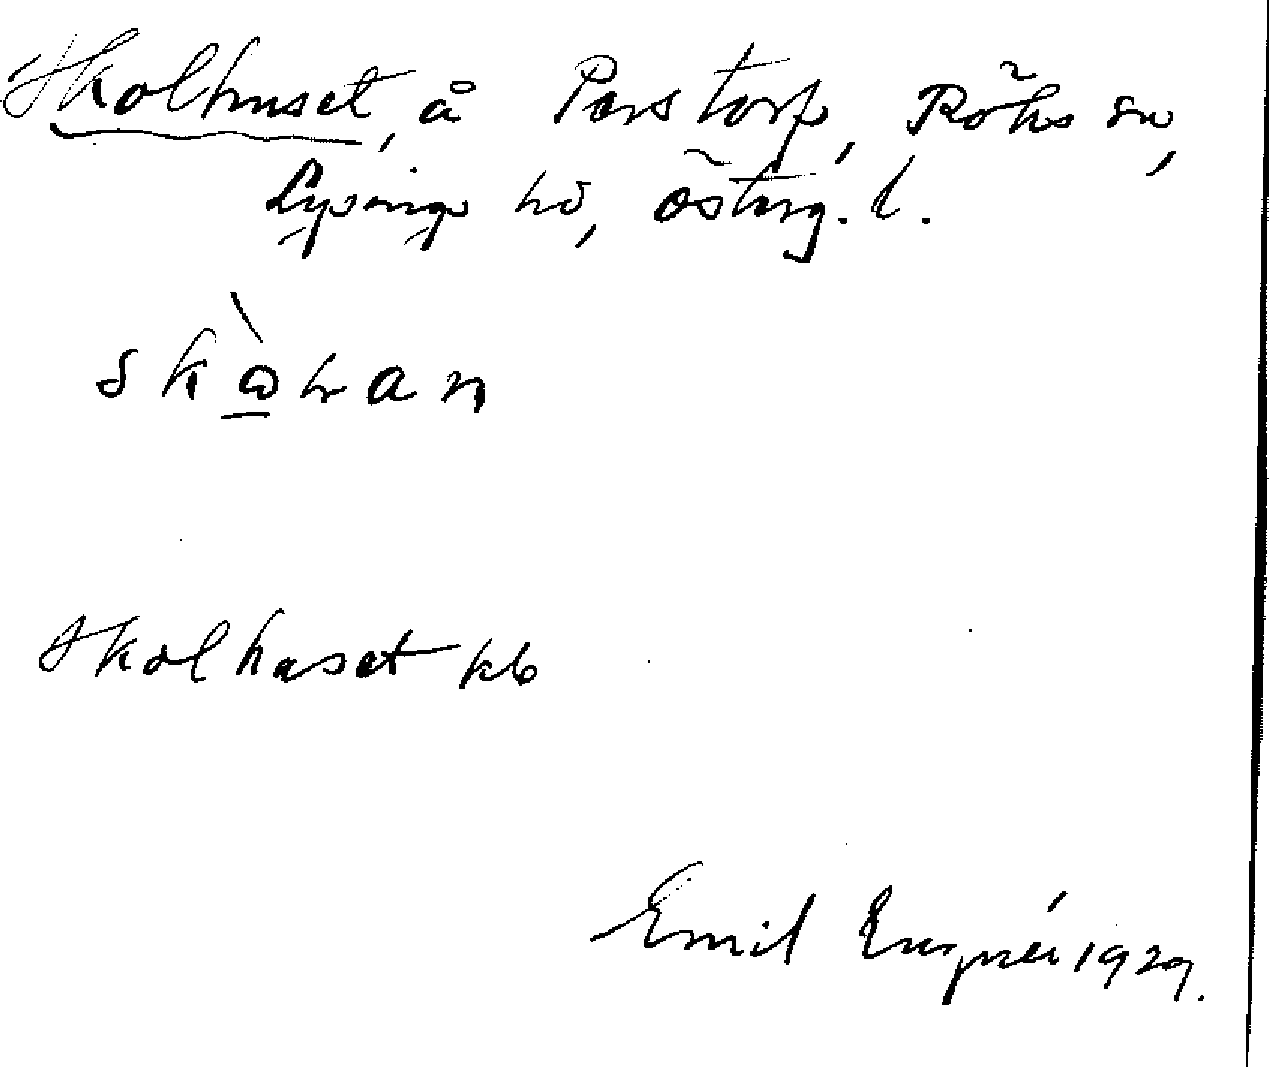 Skolhuset, å Parstorp, Röks sn,
Lysings hd, Österg. l.
skò̱lan
Skolhuset kb
Emil 1929.